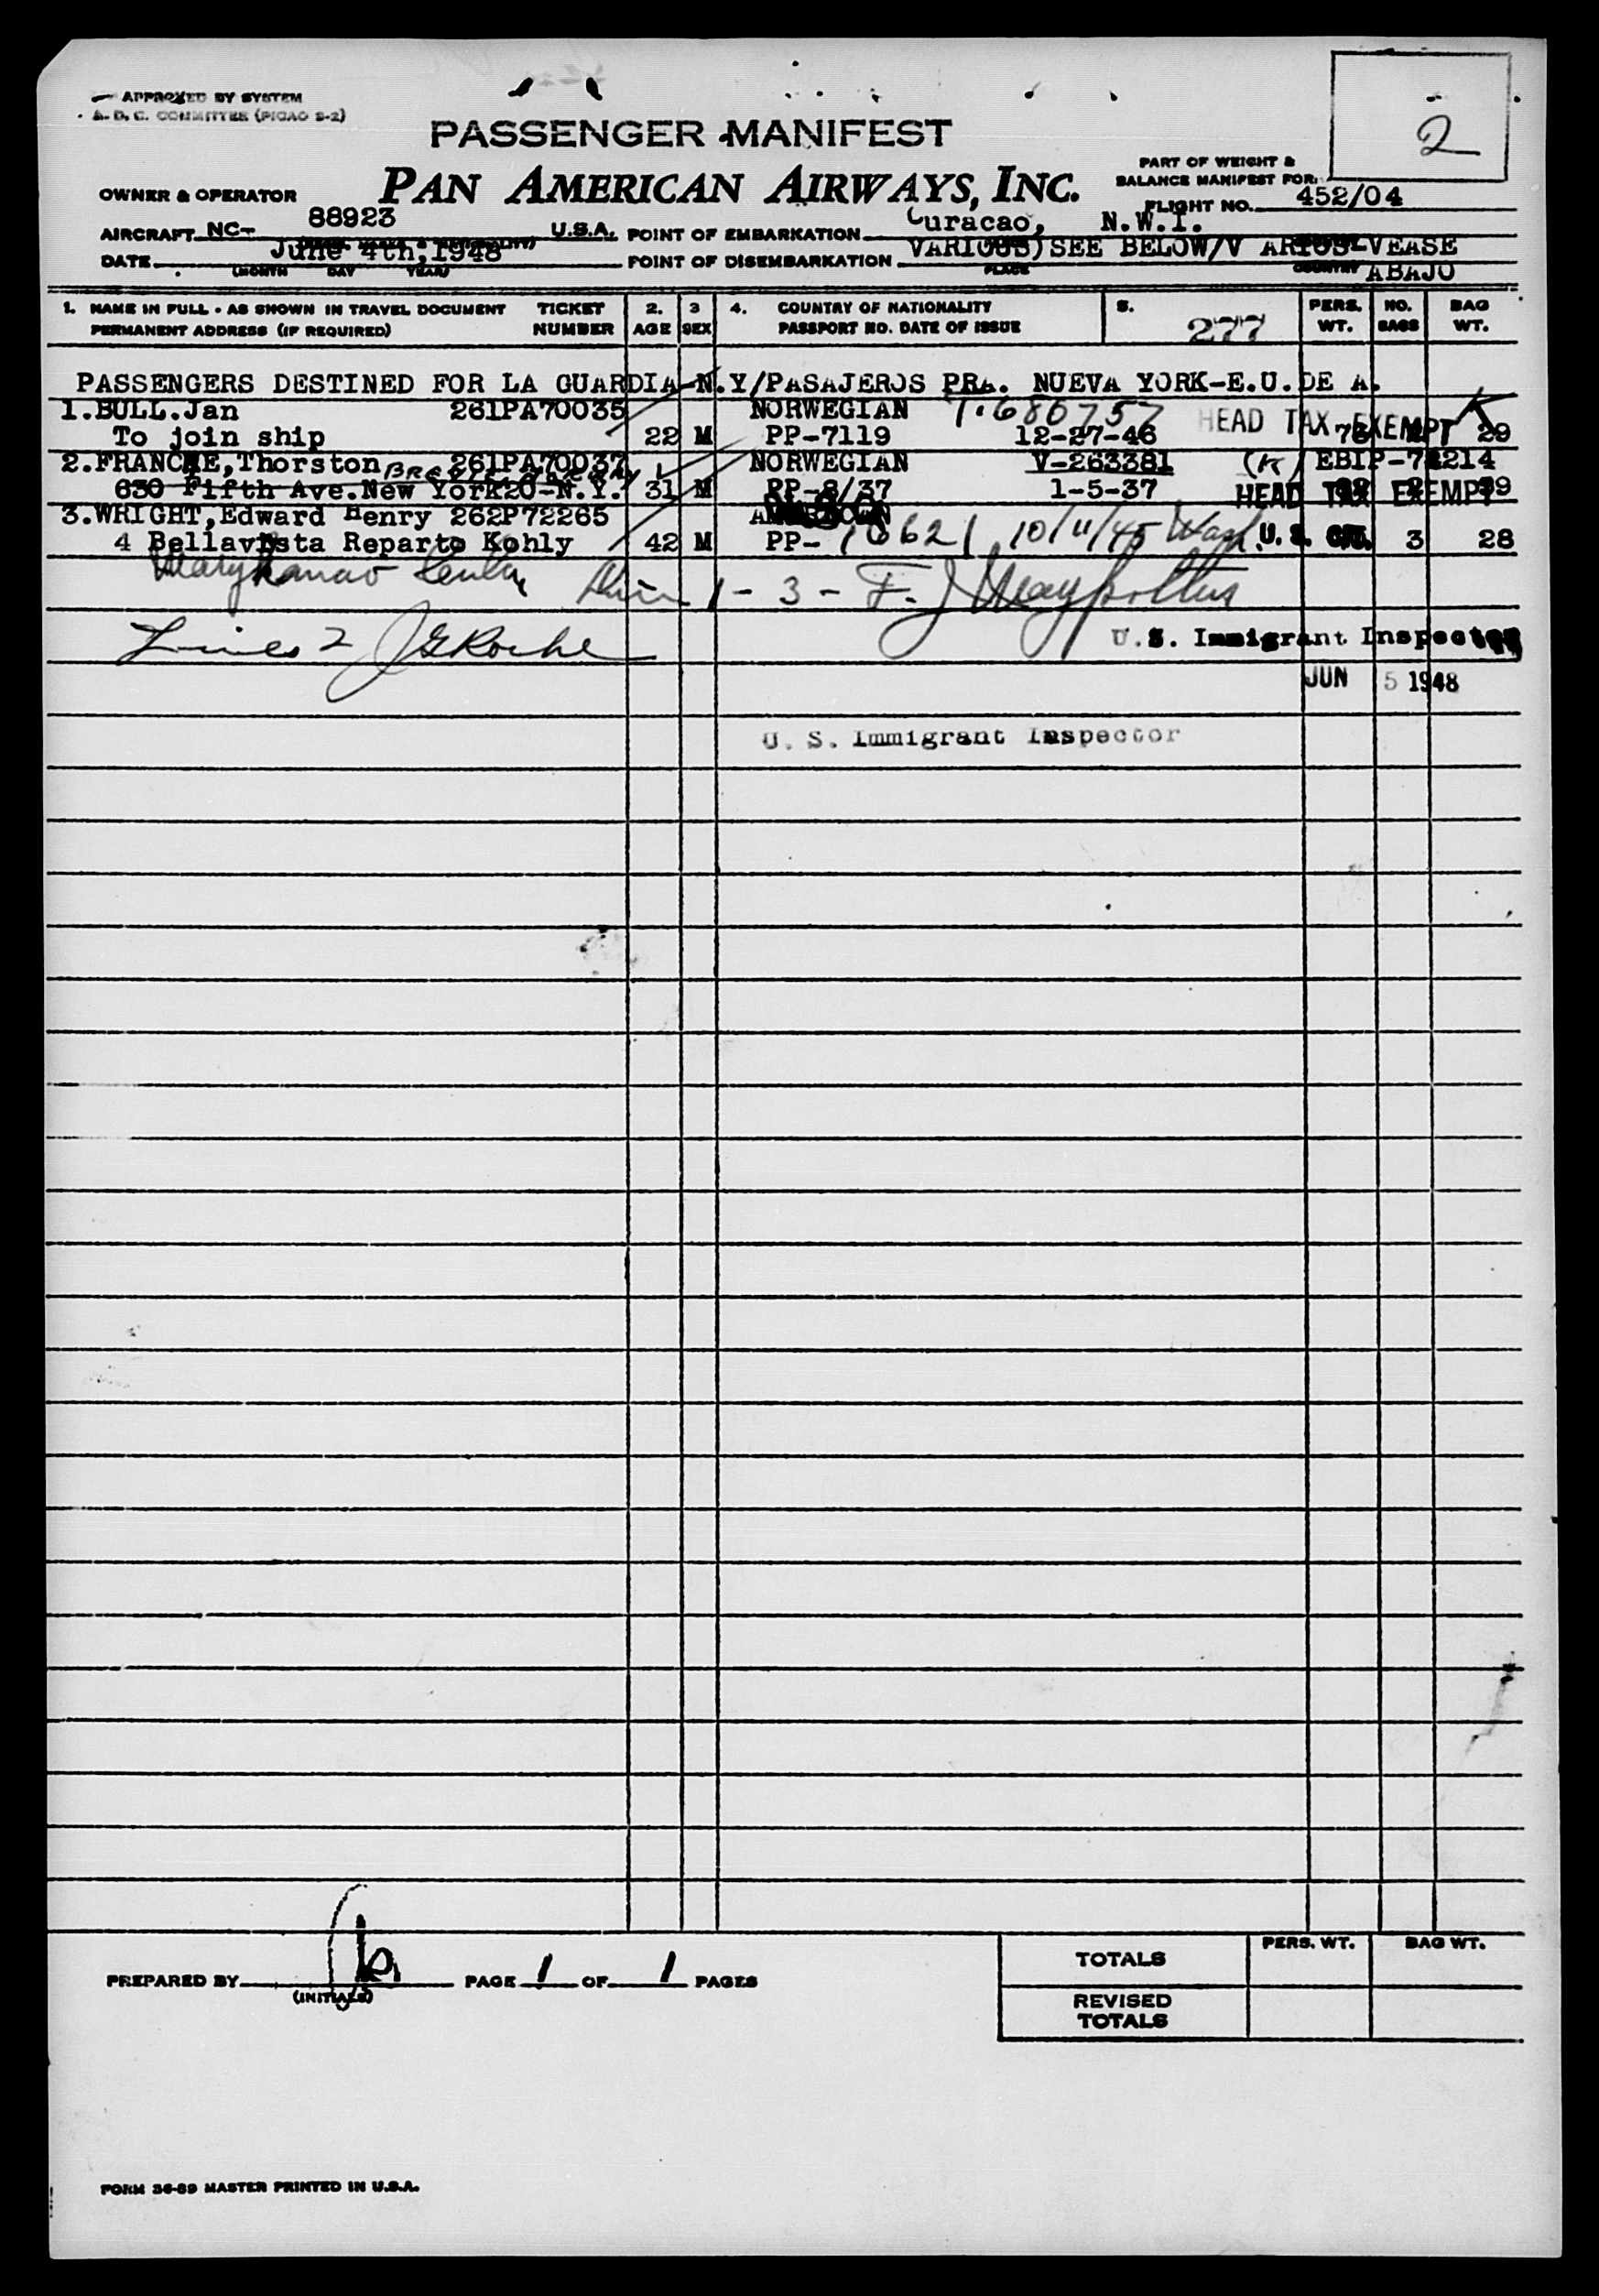 APPROVED BY SYSTEM
A. D. C. COMMITTEE (PICAO S-2)
2
PASSENGER MANIFEST
PAN AMERICAN AIRWAYS, INC.
PART OF WEIGHT &
BALANCE MANIFEST FOR:
OWNER & OPERATOR
FLIGHT NO. 452/04
AIRCRAFT NC- 88923 U.S.A. POINT OF EMBARKATION Curacao, N.W.I.
DATE June 4th,1948 POINT OF DISEMBARKATION VARIOUS) SEE BELOW/V ARIOS-VEASE
(MONTH DAY YEAR) PLACE COUNTRY ABAJO
1. NAME IN FULL - AS SHOWN IN TRAVEL DOCUMENT TICKET 2. 3 4. COUNTRY OF NATIONALITY 5. PERS. NO. BAG
PERMANENT ADDRESS (IF REQUIRED) NUMBER AGE SEX PASSPORT NO. DATE OF ISSUE 277 WT. BAGS WT.
PASSENGERS DESTINED FOR LA GUARDIA-N.Y/PASAJEROS PRA. NUEVA YORK-E.U.DE A.
1.BULL.Jan 261PA70035 NORWEGIAN T-680757 HEAD TAX EXEMPT K
To join ship 22 M PP-7119 12-27-46 29
2.FRANCKE,Thorston 261PA70037 NORWEGIAN V-263381 (K) EBIP-
630 Fifth Ave.New York20-N.Y. 31 M PP-8/37 1-5-37 HEAD TAX EXEMPT
3.WRIGHT,Edward Henry 262P72265
4 Bellavista Reparto Kohly 42 M PP- 10621 10/11/45 Wash. U. S. CIT. 3 28
1 - 3 - F. J.
Lines 2 JGRoche
U. S. Immigrant Inspector
JUN 5 1948
U. S. Immigrant Inspector
PREPARED BY PAGE 1 OF 1 PAGES
(INITIALS)
PERS. WT. BAG WT.
TOTALS
REVISED
TOTALS
FORM 36-89 MASTER PRINTED IN U.S.A.